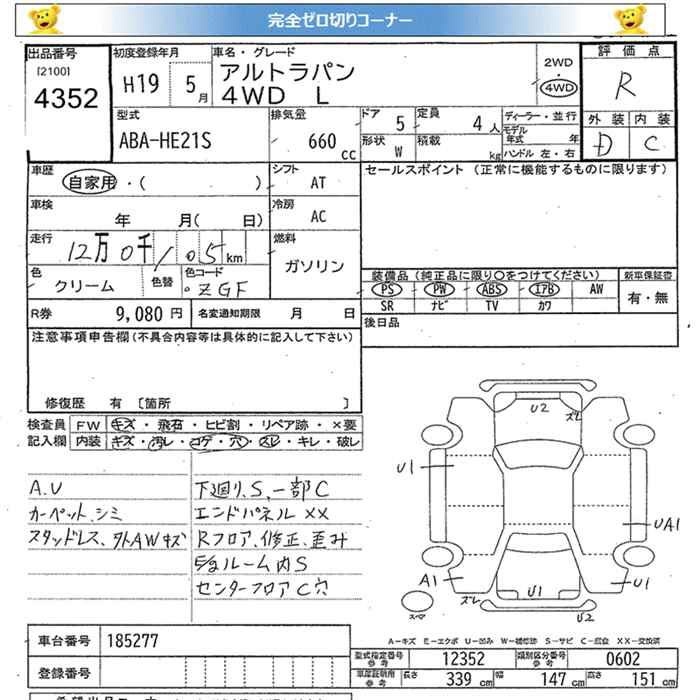 完全ゼロ切りコーナー
出品番号
[2100]
4352
初度登録年月
H19 5月
車名・グレード
アルトラパン
4WD L
2WD
・
4WD
評価点
R
外装 内装
D C
型式
ABA-HE21S
排気量
660
cc
ドア 5
形状 W
定員 4人
積載 kg
ディーラー・並行
モデル年式 年
ハンドル 左・右
車歴
自家用・( )
シフト
AT
車検
年 月( 日)
冷房
AC
走行
12万0千105km
燃料
ガソリン
色
クリーム
色替
色コード
ZGF
R券 9,080円
名変通知期限 月 日
セールスポイント (正常に機能するものに限ります)
装備品(純正品に限り○をつけてください)
PS PW ABS エアB AW
SR ナビ TV カワ
新車保証書
有・無
後日品
注意事項申告欄(不具合内容等は具体的に記入して下さい)
修復歴 有 〔箇所 〕
検査員記入欄
FW キズ・飛石・ヒビ割・リペア跡・×要
内装 キズ・汚レ・コゲ・穴・スレ・キレ・破レ
A.U
カーペット、シミ
スタッドレス、外AWキズ
下廻り、S、一部C
エンドパネル XX
Rフロア、修正、歪み
ルーム内S
センターフロアC穴
U2
ズレ
U1
UA1
A1
ズレ
U1
U1
U2
スペア
A-キズ E-エクボ U-凹み W-補修跡 S-サビ C-腐食 XX-交換済
車台番号 185277
登録番号
型式指定番号 参考 12352
類別区分番号 参考 0602
車庫証明用 参考 長さ 339 cm 幅 147 cm 高さ 151 cm